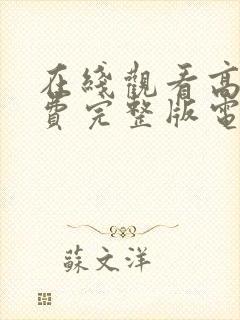 在綫觀看高
費完整版電
蘇文洋